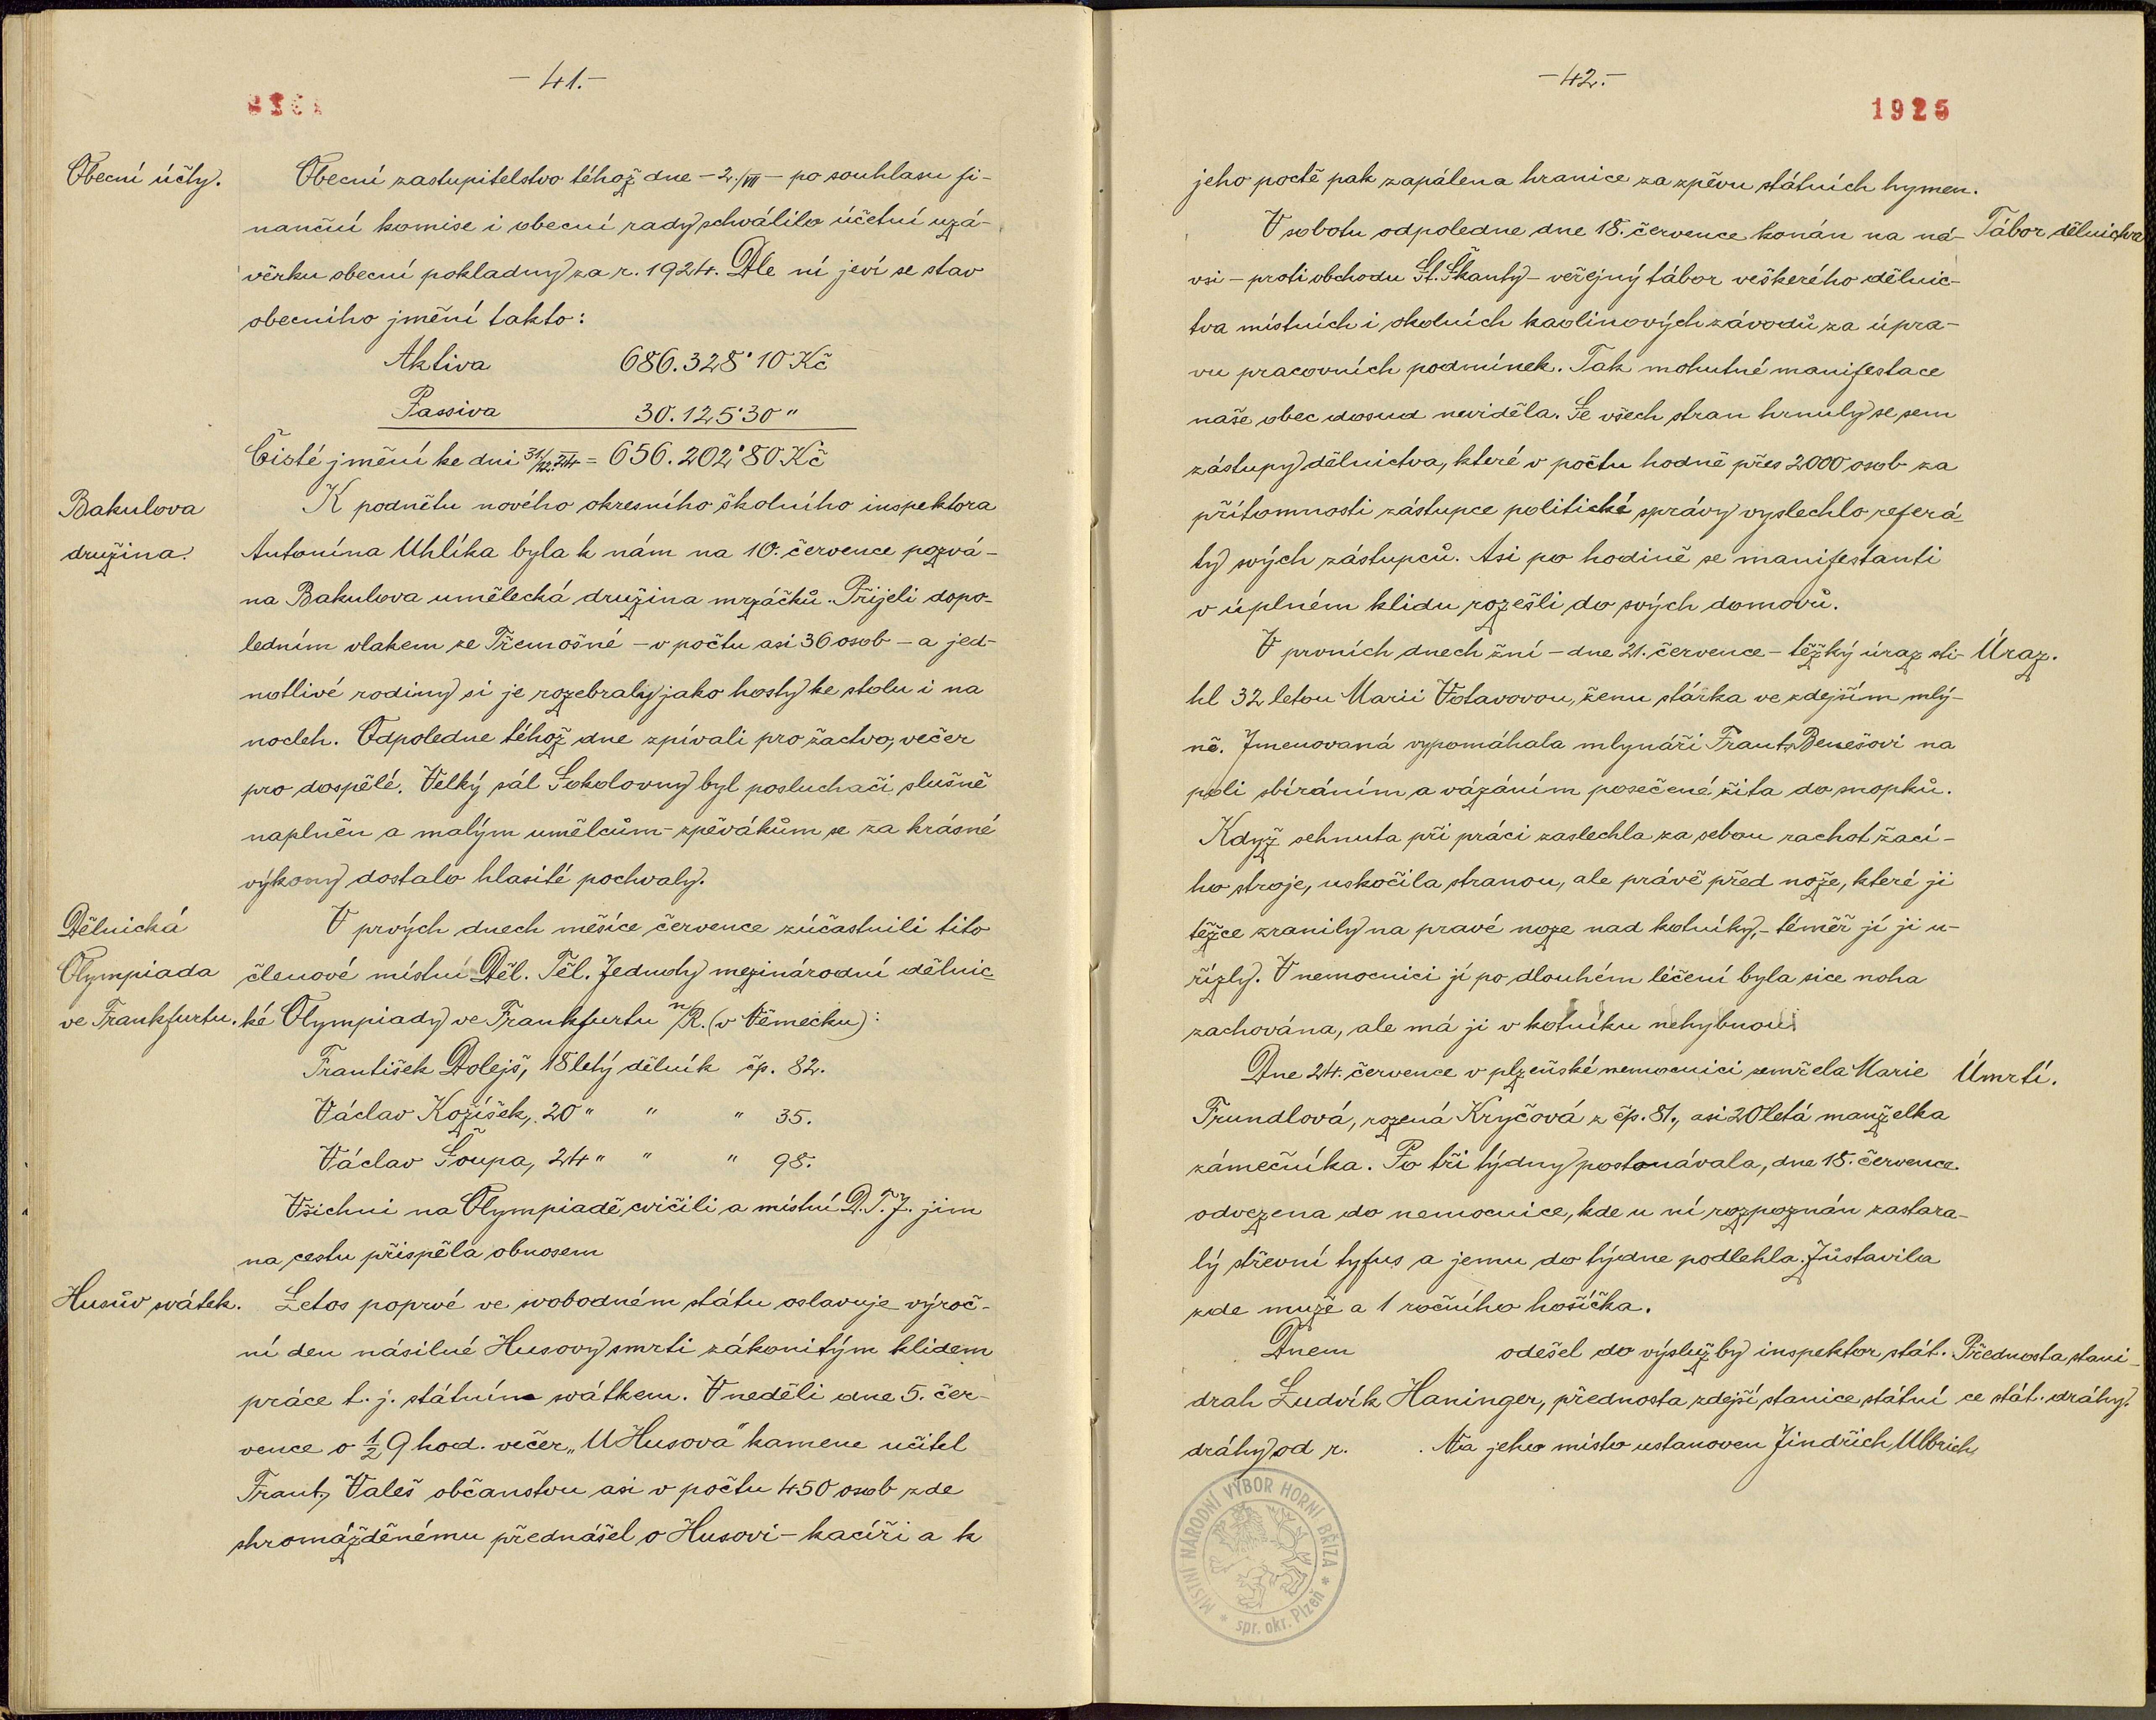 -41.-
Obecní účty.
Obecní zastupitelstvo téhož dne - 2./VII - po souhlasu fi-
nanční komise i obecní rady schválilo účetní uzá-
věrku obecní pokladny za r. 1924. Dle ní jeví se stav
obecního jmění takto:
Aktiva 686.328·10 Kč
Passiva 30.125·30 "
Čisté jmění ke dni 31/12.24 = 656.202·80 Kč
Bakulova
družina.
K podnětu nového okresního školního inspektora
Antonína Uhlíka byla k nám na 10. července pozvá-
na Bakulova umělecká družina mrzáčků. Přijeli dopo-
ledním vlakem ze Třemošné - v počtu asi 36 osob - a jed-
notlivé rodiny si je rozebraly jako hosty ke stolu i na
nocleh. Odpoledne téhož dne zpívali pro žactvo, večer
pro dospělé. Velký sál Sokolovny byl posluchači slušně
naplněn a malým umělcům-zpěvákům se za krásné
výkony dostalo hlasité pochvaly.
Dělnická
Olympiada
ve Frankfurtu.
V prvých dnech měsíce července zúčastnili tito
členové místní Děl. Těl. Jednoty mezinárodní dělnic-
ké Olympiady ve Frankfurtu n/R. (v Německu):
František Dolejš, 18letý dělník čp. 82.
Václav Kožíšek, 20 " " " 35.
Václav Šoupa, 24 " " " 98.
Všichni na Olympiadě cvičili a místní D.T.J. jim
na cestu přispěla obnosem
Husův svátek.
Letos poprvé ve svobodném státu oslavuje výroč-
ní den násilné Husovy smrti zákonitým klidem
práce t. j. státním svátkem. V neděli dne 5. čer-
vence o ½ 9 hod. večer „U Husova" kamene učitel
Frant. Valeš občanstvu asi v počtu 450 osob zde
shromážděnému přednášel o Husovi - kacíři a k
-42.-
1925
jeho poctě pak zapálena hranice za zpěvu státních hymen.
Tábor dělnictva
V sobotu odpoledne dne 18. července konán na ná-
vsi - proti obchodu St. Škanty - veřejný tábor veškerého dělnic-
tva místních i okolních kaolinových závodů za úpra-
vu pracovních podmínek. Tak mohutné manifestace
naše obec dosud neviděla. Se všech stran hrnuly se sem
zástupy dělnictva, které v počtu hodně přes 2000 osob za
přítomnosti zástupce politické správy vyslechlo referá-
ty svých zástupců. Asi po hodině se manifestanti
v úplném klidu rozešli do svých domovů.
Úraz.
V prvních dnech žní - dne 21. července - těžký úraz sti-
hl 32 letou Marii Votavovou, ženu stárka ve zdejším mlý-
ně. Jmenovaná vypomáhala mlynáři Frant. Benešovi na
poli sbíráním a vázáním posečené žita do snopků.
Když sehnuta při práci zaslechla za sebou rachot žací-
ho stroje, uskočila stranou, ale právě před nože, které ji
těžce zranily na pravé noze nad kotníky, - téměř jí ji u-
řízly. V nemocnici jí po dlouhém léčení byla sice noha
zachována, ale má ji v kotníku nehybnou.
Úmrtí.
Dne 24. července v plzeňské nemocnici zemřela Marie
Frundlová, rozená Kryčová z čp. 81., asi 20letá manželka
zámečníka. Po tři týdny postonávala, dne 18. července
odvezena do nemocnice, kde u ní rozpoznán zastara-
lý střevní tyfus a jemu do týdne podlehla. Zůstavila
zde muže a 1 ročního hošíčka.
Přednosta stani-
ce stát. dráhy.
Dnem odešel do výslužby inspektor stát.
drah Ludvík Haninger, přednosta zdejší stanice státní
dráhy od r. . Na jeho místo ustanoven Jindřich Ulbrich
MÍSTNÍ NÁRODNÍ VÝBOR HORNÍ BŘÍZA
* spr. okr. Plzeň *